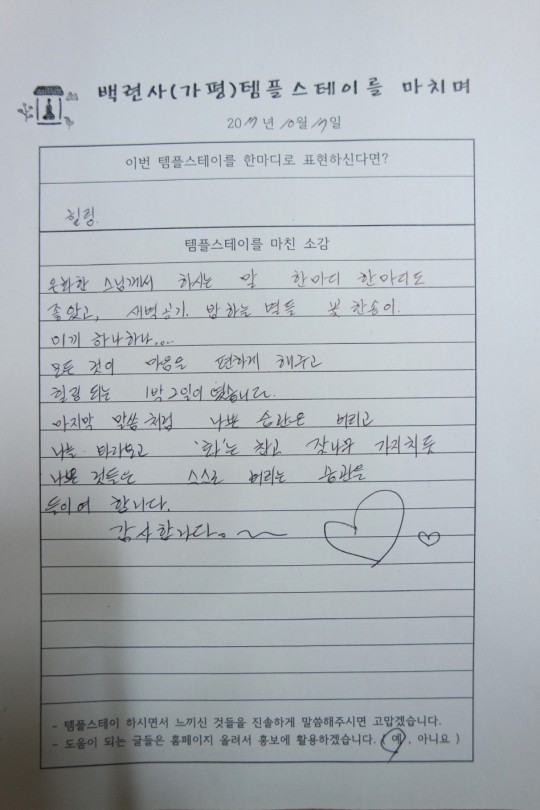 백련사(가평)템플스테이를 마치며
2017년 10월 17일
이번 템플스테이를 한마디로 표현하신다면?
힐링.
템플스테이를 마친 소감
온화한 스님께서 하시는 말 한마디 한마디도
좋았고, 새벽공기. 밤하늘 별들 꽃 한송이.
이끼 하나하나....
모든 것이 마음을 편하게 해주고
힐링 되는 1박2일이 였습니다.
마지막 말씀처럼 나쁜 습관은 버리고
나를 바라보고 '화'는 참고 잠나무 가지치듯
나쁜 것들은 스스로 버리는 습관을
들이여 합니다.
감사합니다。~~
- 템플스테이 하시면서 느끼신 것들을 진솔하게 말씀해주시면 고맙겠습니다.
- 도움이 되는 글들은 홈페이지 올려서 홍보에 활용하겠습니다. ( 예 , 아니요 )